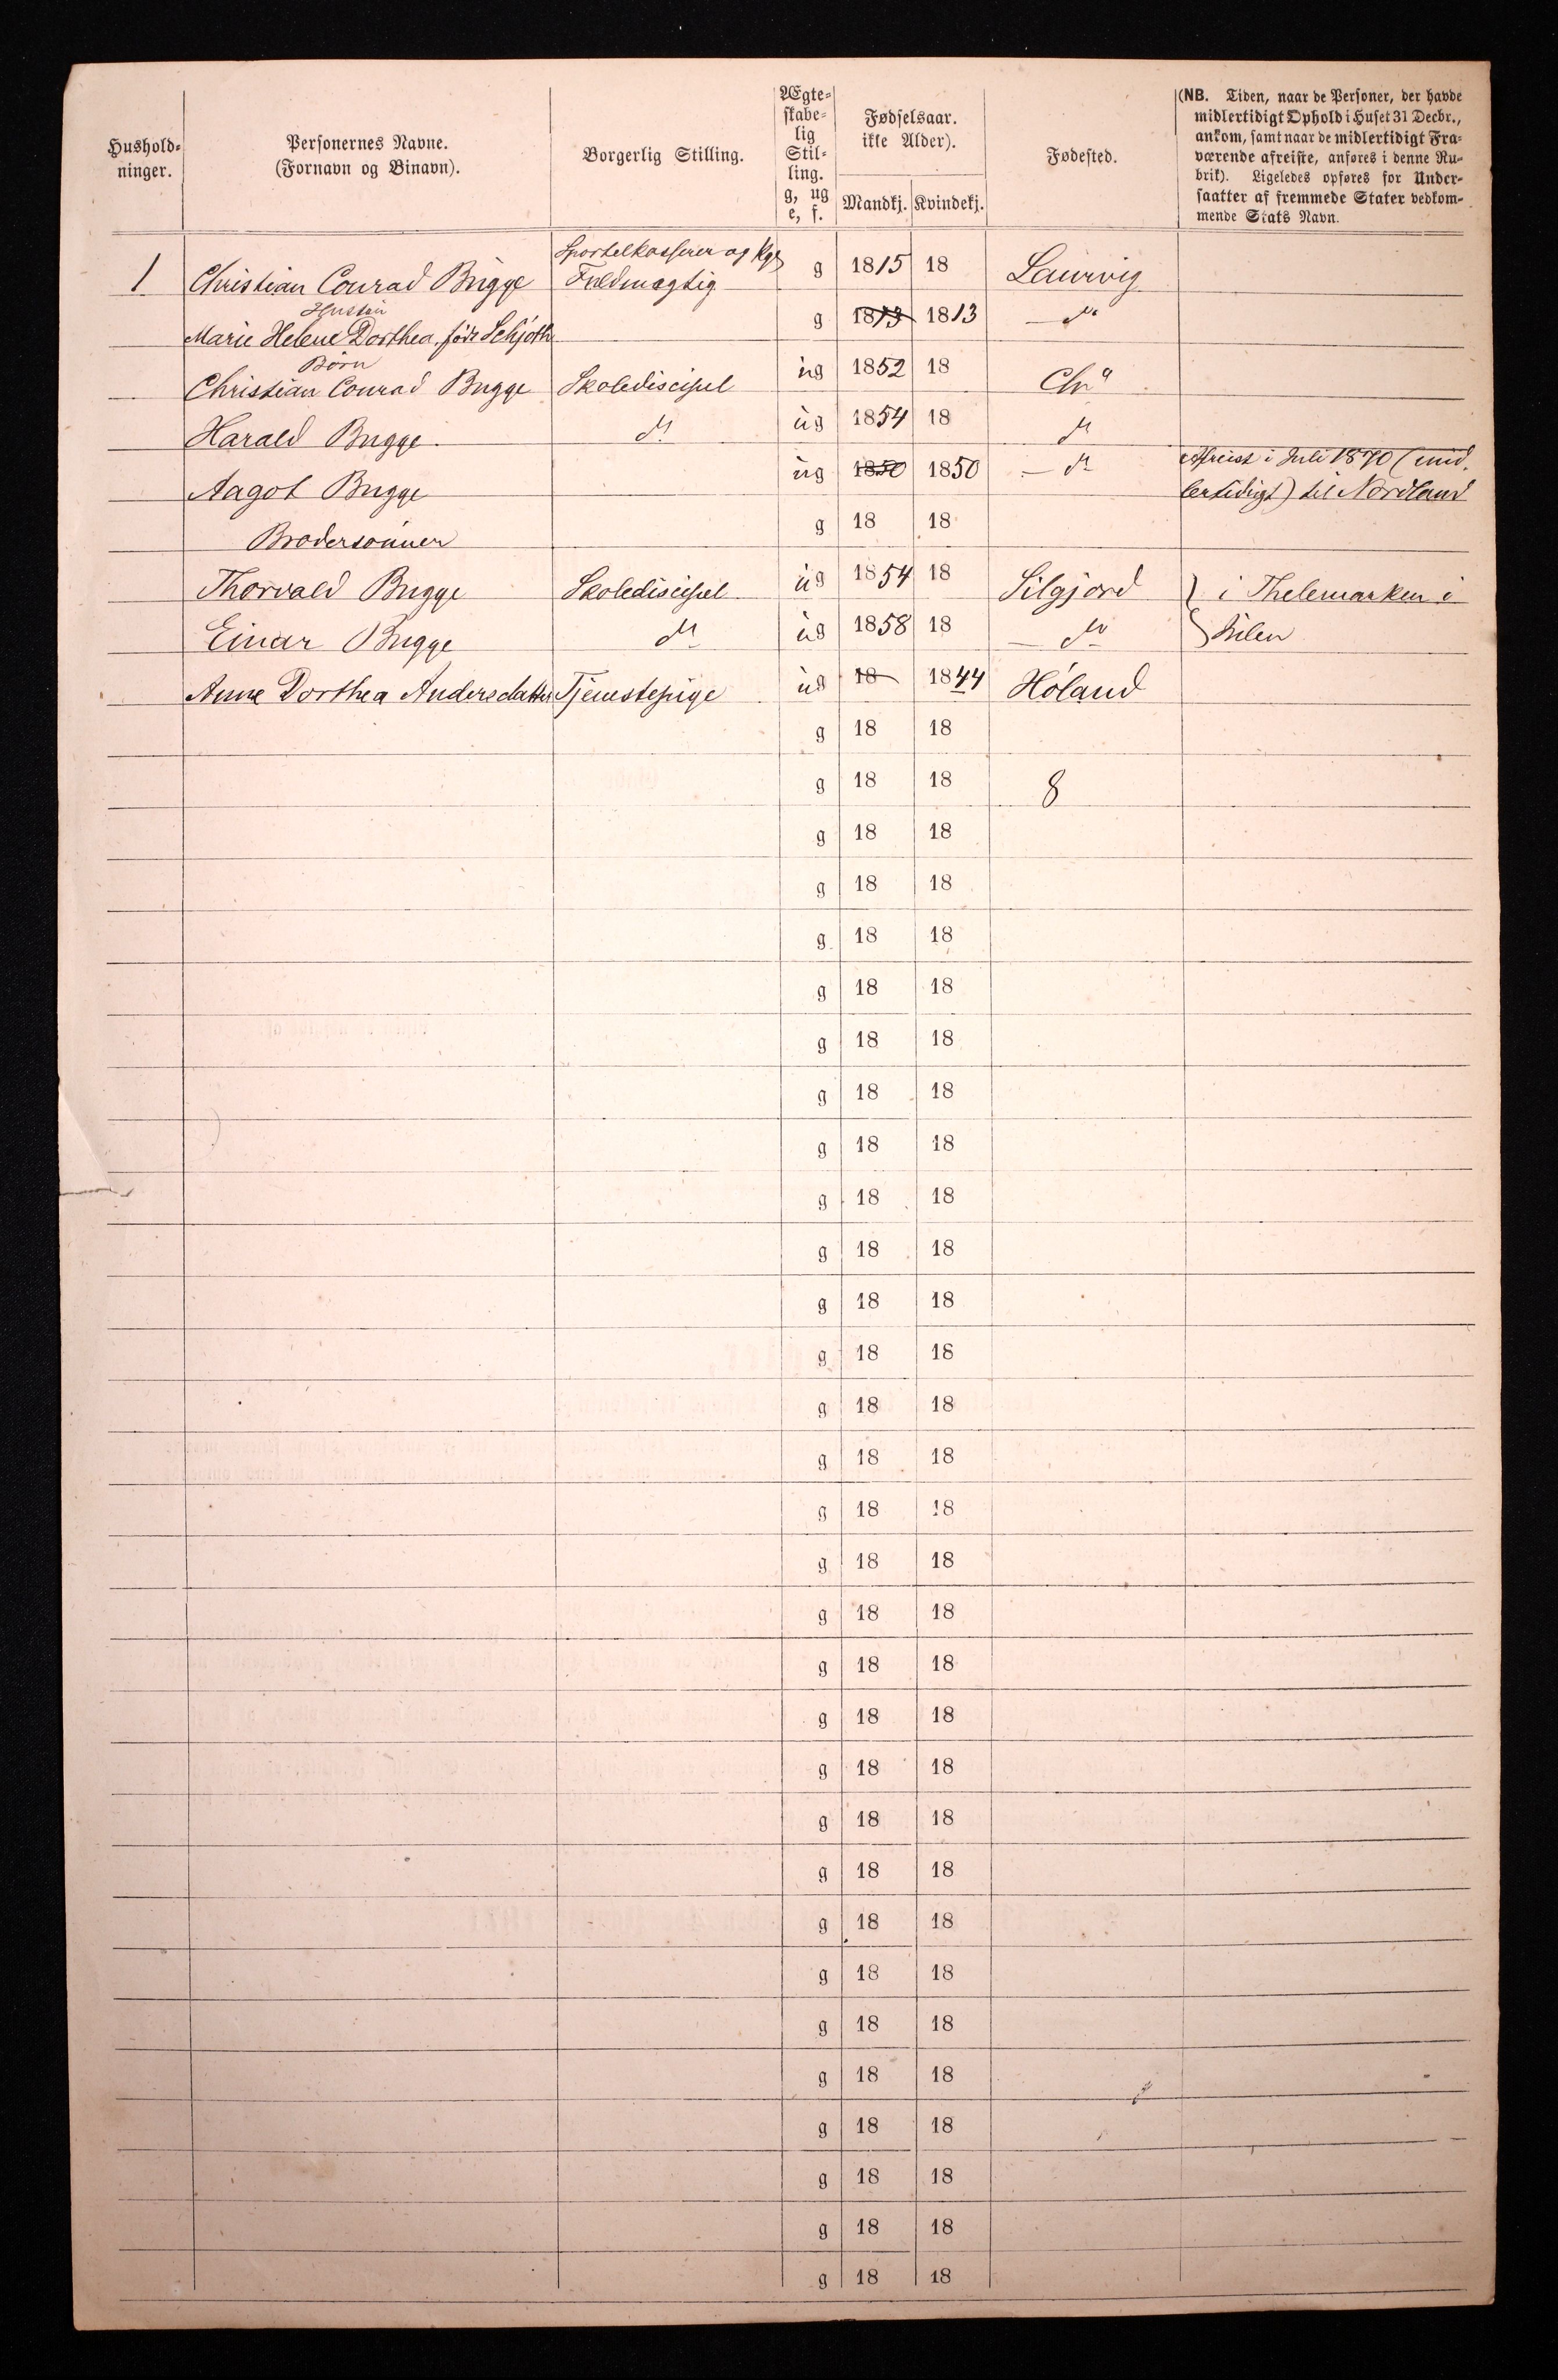 Hushold-
ninger.
Personernes Navne.
(Fornavn og Binavn).
Borgerlig Stilling.
Ægte-
skabe-
lig
Stil-
ling.
g, ug
e, f.
Fødselsaar.
ikke Alder).
Mandkj. Kvindekj.
Fødested.
(NB. Tiden, naar de Personer, der havde
midlertidigt Ophold i Huset 31 Decbr.,
ankom, samt naar de midlertidigt Fra-
værende afreiste, anføres i denne Ru-
brik). Ligeledes opføres for Under-
saatter af fremmede Stater vedkom-
mende Stats Navn.
Sportelkasserer og Kgs
1 Christian Conrad Bugge Fuldmægtig g 1815 18 Laurvig
Hustru
Marie Helene Dorthea, føde Schjøth g 1813 1813 — do
Børn
Christian Conrad Bugge Skolediscipel ug 1852 18 Chra
Harald Bugge do ug 1854 18 do
Aagot Bugge ug 1850 1850 — do Afreist i Juli 1870 (mid.
lertidigt) til Nordland
Brodersønner g 18 18
Thorvald Bugge Skolediscipel ug 1854 18 Silgjord i Thelemarken i
Einar Bugge do ug 1858 18 — do Julen
Anne Dorthea Andersdatter Tjenestepige ug 18 1844 Høland
g 18 18
g 18 18 8
g 18 18
g 18 18
g 18 18
g 18 18
g 18 18
g 18 18
g 18 18
g 18 18
g 18 18
g 18 18
g 18 18
g 18 18
g 18 18
g 18 18
g 18 18
g 18 18
g 18 18
g 18 18
g 18 18
g 18 18
g 18 18
g 18 18
g 18 18
g 18 18
g 18 18
g 18 18
g 18 18
g 18 18
g 18 18